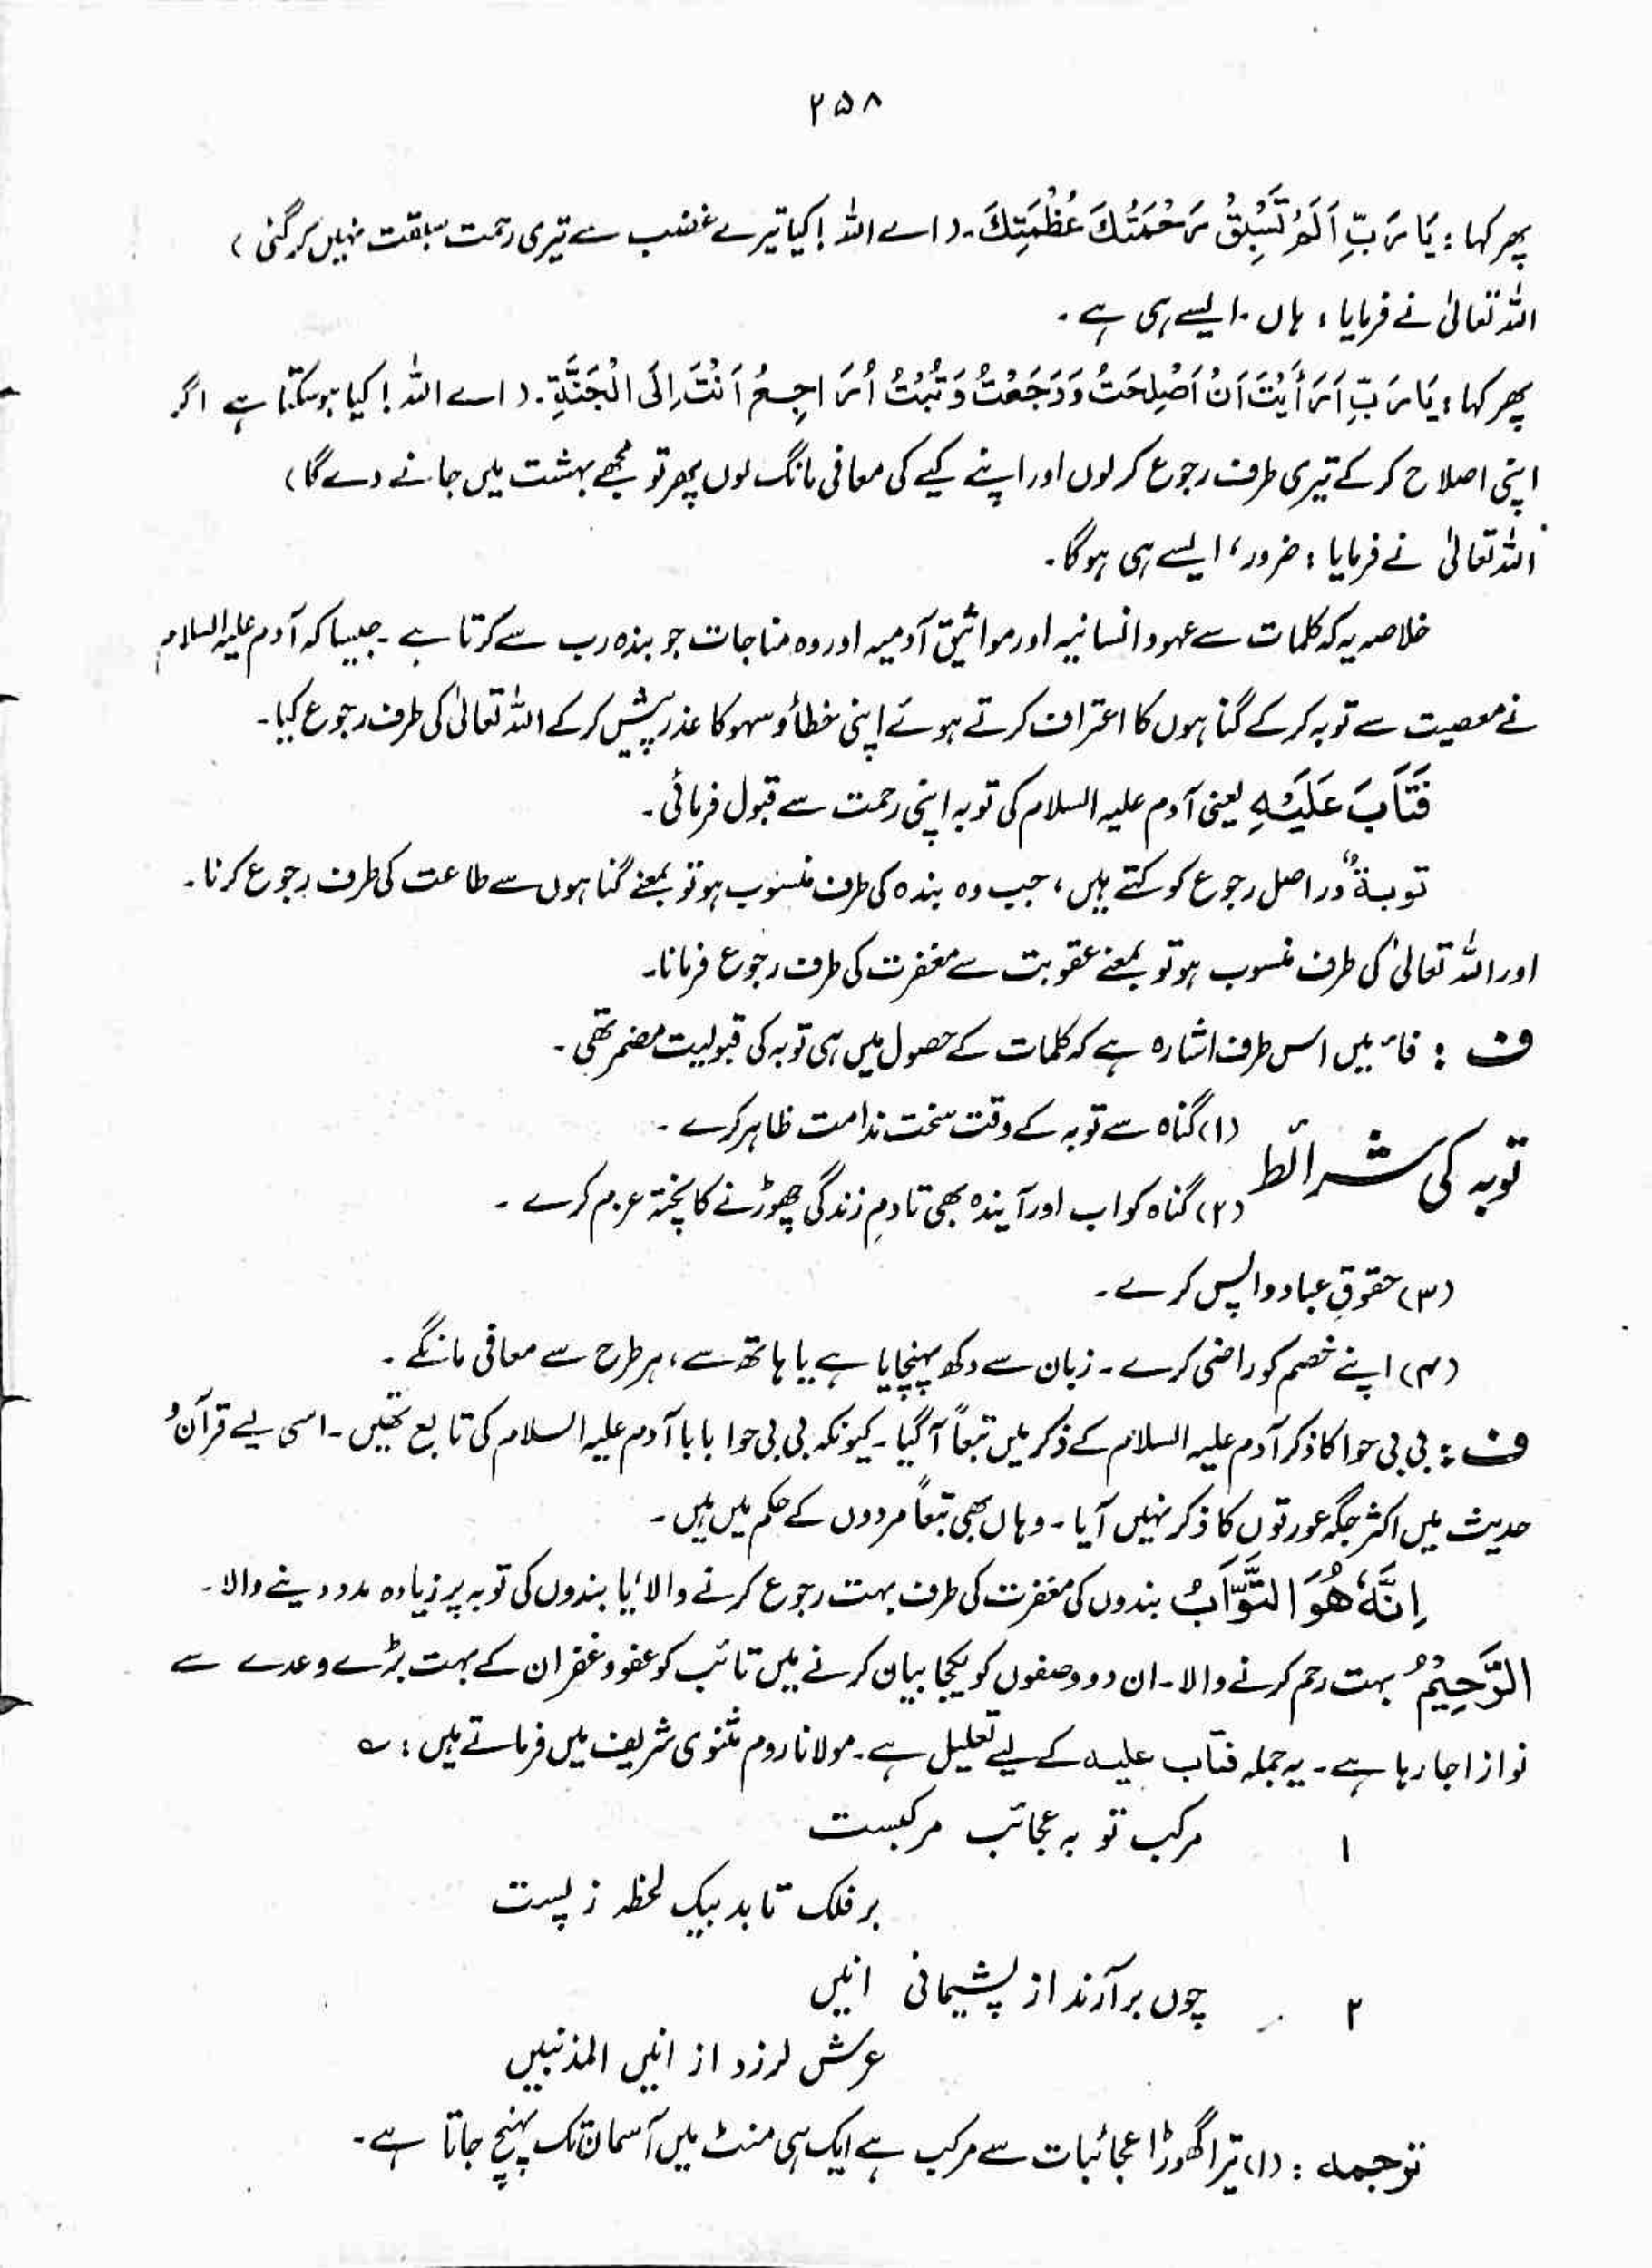 ۲۵۸
پھر کہا : يَا رَبِّ اَلَمْ تَسْبِقْ رَحْمَتُكَ عُظْمَتِكَ۔ (اے اللہ! کیا تیرے غضب سے تیری رحمت سبقت نہیں کر گئی)
اللہ تعالیٰ نے فرمایا : ہاں۔ ایسے ہی ہے۔
پھر کہا : يَا رَبِّ اَرَأَيْتَ اَنْ اَصْلِحَتُ وَدَجَعْتُ وَتُبْتُ اُرَاجِعُ اَنْتَ اِلَى الْجَنَّةِ۔ (اے اللہ! کیا ہو سکتا ہے اگر
اپنی اصلاح کر کے تیری طرف رجوع کر لوں اور اپنے کیے کی معافی مانگ لوں پھر تو مجھے بہشت میں جانے دے گا)
اللہ تعالیٰ نے فرمایا : ضرور، ایسے ہی ہوگا۔
خلاصہ یہ کہ کلمات سے عہود انسانیہ اور مواثیق آدمیہ اور وہ مناجات جو بندہ رب سے کرتا ہے۔ جیسا کہ آدم علیہ السلام
نے معصیت سے توبہ کر کے گناہوں کا اعتراف کرتے ہوئے اپنی خطأ و سہو کا عذر پیش کر کے اللہ تعالیٰ کی طرف رجوع کیا۔
فَتَابَ عَلَيْهِ یعنی آدم علیہ السلام کی توبہ اپنی رحمت سے قبول فرمائی۔
توبۃٌ دراصل رجوع کو کہتے ہیں، جب وہ بندہ کی طرف منسوب ہو تو بمعنے گناہوں سے طاعت کی طرف رجوع کرنا۔
اور اللہ تعالیٰ کی طرف منسوب ہو تو بمعنے عقوبت سے مغفرت کی طرف رجوع فرمانا۔
ف : فاء میں اس طرف اشارہ ہے کہ کلمات کے حصول میں ہی توبہ کی قبولیت مضمر تھی۔
توبہ کی شرائط
(۱) گناہ سے توبہ کے وقت سخت ندامت ظاہر کرے۔
(۲) گناہ کو اب اور آیندہ بھی تا دمِ زندگی چھوڑنے کا پختہ عزم کرے۔
(۳) حقوقِ عباد واپس کرے۔
(۴) اپنے خصم کو راضی کرے۔ زبان سے دکھ پہنچایا ہے یا ہاتھ سے، ہر طرح سے معافی مانگے۔
ف : بی بی حوا کا ذکر آدم علیہ السلام کے ذکر میں تبعاً آ گیا۔ کیونکہ بی بی حوا بابا آدم علیہ السلام کی تابع تھیں۔ اسی لیے قرآن و
حدیث میں اکثر جگہ عورتوں کا ذکر نہیں آیا۔ وہاں بھی تبعاً مردوں کے حکم میں ہیں۔
اِنَّهٗ هُوَ التَّوَّابُ بندوں کی مغفرت کی طرف بہت رجوع کرنے والا، یا بندوں کی توبہ پر زیادہ مدد دینے والا۔
الرَّحِيْمُ بہت رحم کرنے والا۔ ان دو وصفوں کو یکجا بیان کرنے میں تائب کو عفو و غفران کے بہت بڑے وعدے سے
نوازا جا رہا ہے۔ یہ جملہ فتاب علیہ کے لیے تعلیل ہے۔ مولانا روم مثنوی شریف میں فرماتے ہیں : ؎
۱ مرکب تو بہ عجائب مرکبست
بر فلک تابد بیک لحظہ ز پست
۲ چوں بر آرند از پشیمانی انیں
عرش لرزد از انیں المذنبیں
ترجمہ : (۱) تیرا گھوڑا عجائبات سے مرکب ہے ایک ہی منٹ میں آسمان تک پہنچ جاتا ہے۔